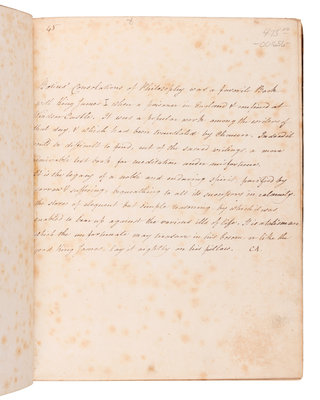 45
475
Boëius' Consolations of Philosophy was a favorite Book
with King James I when a prisoner in England & confined at
Windsor Castle. It was a popular work among the writers of
that day, & which had been translated by Chaucer. Indeed it
would be difficult to find, out of the sacred writings, a more
admirable text book for meditation under misfortune.
It is the legacy of a noble and enduring spirit, purified by
sorrow & suffering, bequeathing to all its successors in calamity
the stores of eloquent but simple reasoning, by which it was
enabled to bear up against the various ills of life. It is a talisman
which the unfortunate may treasure in his bosom, or like the
good King James, lay it nightly on his pillow. C.A.